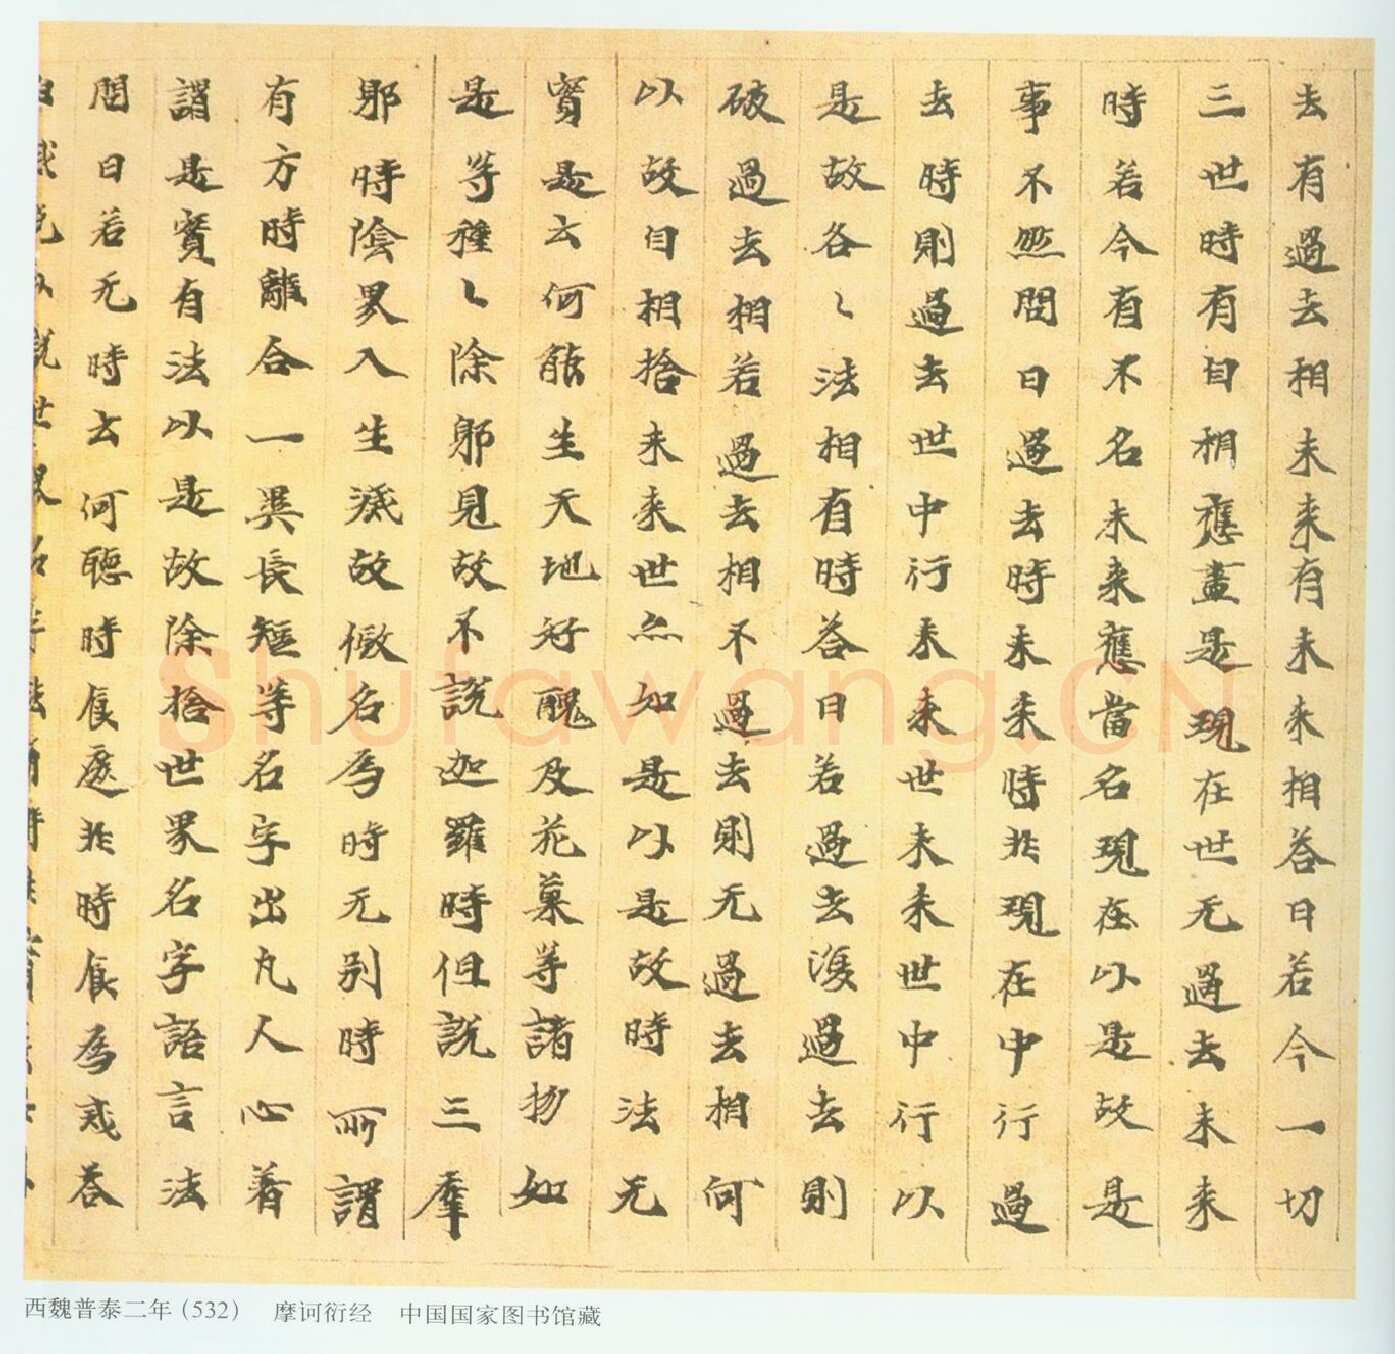 去有過去相未来有未来相荅曰若今一切
三世時有自相應盡是現在世无過去未来
時若今有不名未来應當名現在以是故是
事不然問曰過去時未来時非現在中行過
去時則過去世中行未来世未来世中行以
是故各〻法相有時荅曰若過去復過去則
破過去相若過去相不過去則无過去相何
以故自相捨未来世亦如是以是故時法无
實是云何能生天地好醜及花菓等諸物如
是等種〻除邪見故不說迦羅時但說三摩
耶時陰界入生滅故假名為時无別時所謂
有方時離合一異長短等名字出凡人心著
謂是實有法以是故除捨世界名字語言法
問曰若无時云何聽時食遮非時食為戒荅
曰我先以說世界名字
Shufawang.CN
西魏普泰二年(532) 摩诃衍经 中国国家图书馆藏